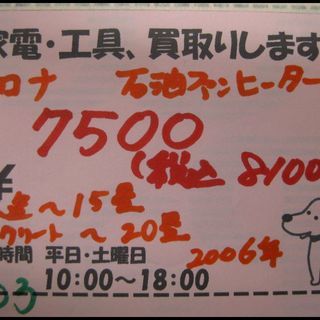 家電・工具、買取りします
ロナ 石油ファンヒーター
7500
(税込 8100
¥
造~15畳
クリート~20畳
時間 平日・土曜日 2006年
10:00~18:00
03